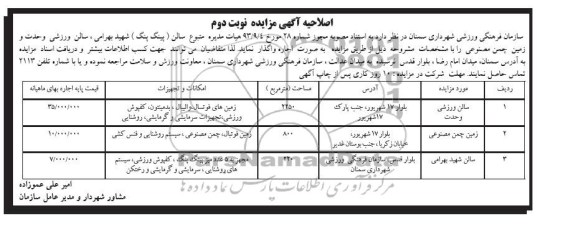 اصلاحیه آگهی مزایده نوبت دوم
سازمان فرهنگی ورزشی شهرداری سمنان در نظر دارد به استناد مصوبه مجوز شماره ۲۸ مورخ ۹۳/۹/۴ هیات مدیره متبوع سالن ( پینگ پنگ ) شهید بهرامی ، سالن ورزشی وحدت و
زمین چمن مصنوعی را با مشخصات مشروحه ذیل از طریق مزایده به صورت اجاره واگذار نماید لذا متقاضیان می توانند جهت کسب اطلاعات بیشتر و دریافت اسناد مزایده
به آدرس سمنان، میدان امام رضا ، بلوار قدس نرسیده به میدان عدالت ، سازمان فرهنگی ورزشی شهرداری سمنان ، معاونت ورزش و سلامت مراجعه نموده و یا با شماره تلفن ۲۱۱۳
تماس حاصل نمایند. مهلت شرکت در مزایده : ۱۰ روز کاری پس از چاپ آگهی
ردیف مورد مزایده آدرس مساحت (مترمربع) امکانات و تجهیزات قیمت پایه اجاره بهای ماهیانه
۱ سالن ورزشی وحدت بلوار ۱۷ شهریور، جنب پارک ۱۷شهریور ۲۲۵۰ زمین های فوتسال،والیبال ، بدمینتون، کفپوش ورزشی،تجهیزات سرمایشی و گرمایشی، روشنایی ۳۵/۰۰۰/۰۰۰
۲ زمین چمن مصنوعی بلوار ۱۷ شهریور، خیابان زکریا، جنب بوستان غدیر ۸۰۰ زمین فوتبال، چمن مصنوعی ، سیستم روشنایی و فنس کشی ۱۰/۰۰۰/۰۰۰
۳ سالن شهید بهرامی بلوار قدس، سازمان فرهنگی ورزشی شهرداری سمنان ۲۲۰ میز پینگ پنگ ، کفپوش ورزشی، سیستم های روشنایی ، سرمایشی و گرمایشی و رختکن ۷/۰۰۰/۰۰۰
ParsNamadData
مرکز فرآوری اطلاعات پارس نماد داده ها
امیر علی عموزاده
مشاور شهردار و مدیر عامل سازمان